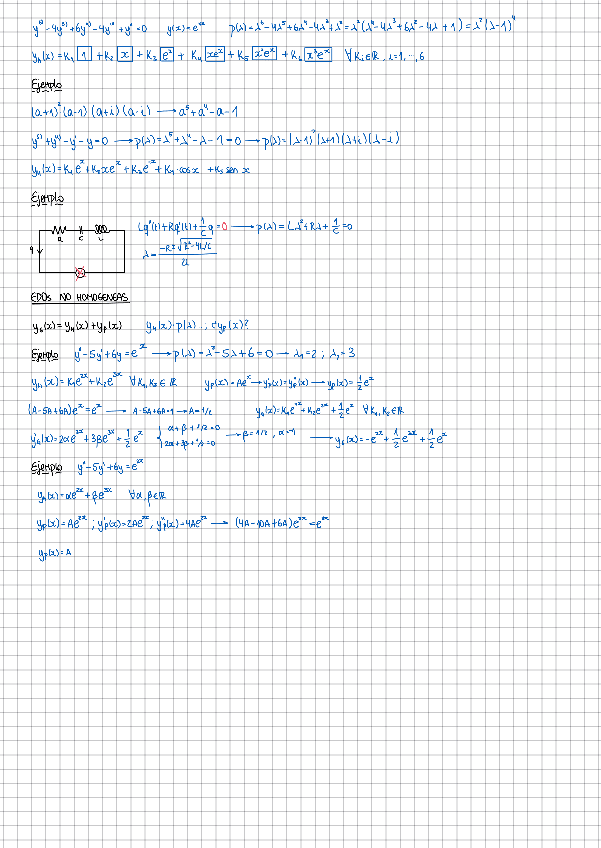 y⁶⁾ - 4y⁵⁾ + 6y⁴⁾ - 4y''' + y'' = 0 y(x) = e^λx p(λ) = λ⁶ - 4λ⁵ + 6λ⁴ - 4λ³ + λ² = λ²(λ⁴ - 4λ³ + 6λ² - 4λ + 1) = λ²(λ-1)⁴
y_h(x) = K₁ 1 + K₂ x + K₃ e^x + K₄ xe^x + K₅ x²e^x + K₆ x³e^x ∀ K_i ∈ ℝ, i=1,...,6
Ejemplo
(a+1)²(a-1)(a+i)(a-i) → a⁵ + a⁴ - a - 1
y⁵⁾ + y⁴⁾ - y' - y = 0 → p(λ) = λ⁵ + λ⁴ - λ - 1 = 0 → p(λ) = (λ-1)²(λ+1)(λ+i)(λ-i)
y_h(x) = K₁e^x + K₂xe^x + K₃e^-x + K₄·cosx + K₅ sen x
Ejemplo
Lq''(t) + Rq'(t) + 1/C q = 0 → p(λ) = Lλ² + Rλ + 1/C = 0
R C L
q
λ = (-R ± √(R² - 4L/C)) / 2L
EDOs NO HOMOGENEAS
y_G(x) = y_H(x) + y_p(x) y_H(x) · p(λ) .; ¿y_p(x)?
Ejemplo y'' - 5y' + 6y = e^x → p(λ) = λ² - 5λ + 6 = 0 → λ₁ = 2 ; λ₂ = 3
y_h(x) = K₁e^2x + K₂e^3x ∀ K₁, K₂ ∈ ℝ y_p(x) = Ae^x → y'_p(x) = y''_p(x) → y_p(x) = 1/2 e^x
(A - 5A + 6A)e^x = e^x → A - 5A + 6A = 1 → A = 1/2 y_G(x) = K₁e^2x + K₂e^3x + 1/2 e^x ∀ K₁, K₂ ∈ ℝ
y'_G(x) = 2αe^2x + 3βe^3x + 1/2 e^x { α + β + 1/2 = 0
2α + 3β + 1/2 = 0 → β = 1/2, α = -1 → y_G(x) = -e^2x + 1/2 e^3x + 1/2 e^x
Ejemplo y'' - 5y' + 6y = e^2x
y_h(x) = αe^2x + βe^3x ∀ α, β ∈ ℝ
y_p(x) = Ae^2x ; y'_p(x) = 2Ae^2x, y''_p(x) = 4Ae^2x → (4A - 10A + 6A)e^2x = e^2x
y_p(x) = A